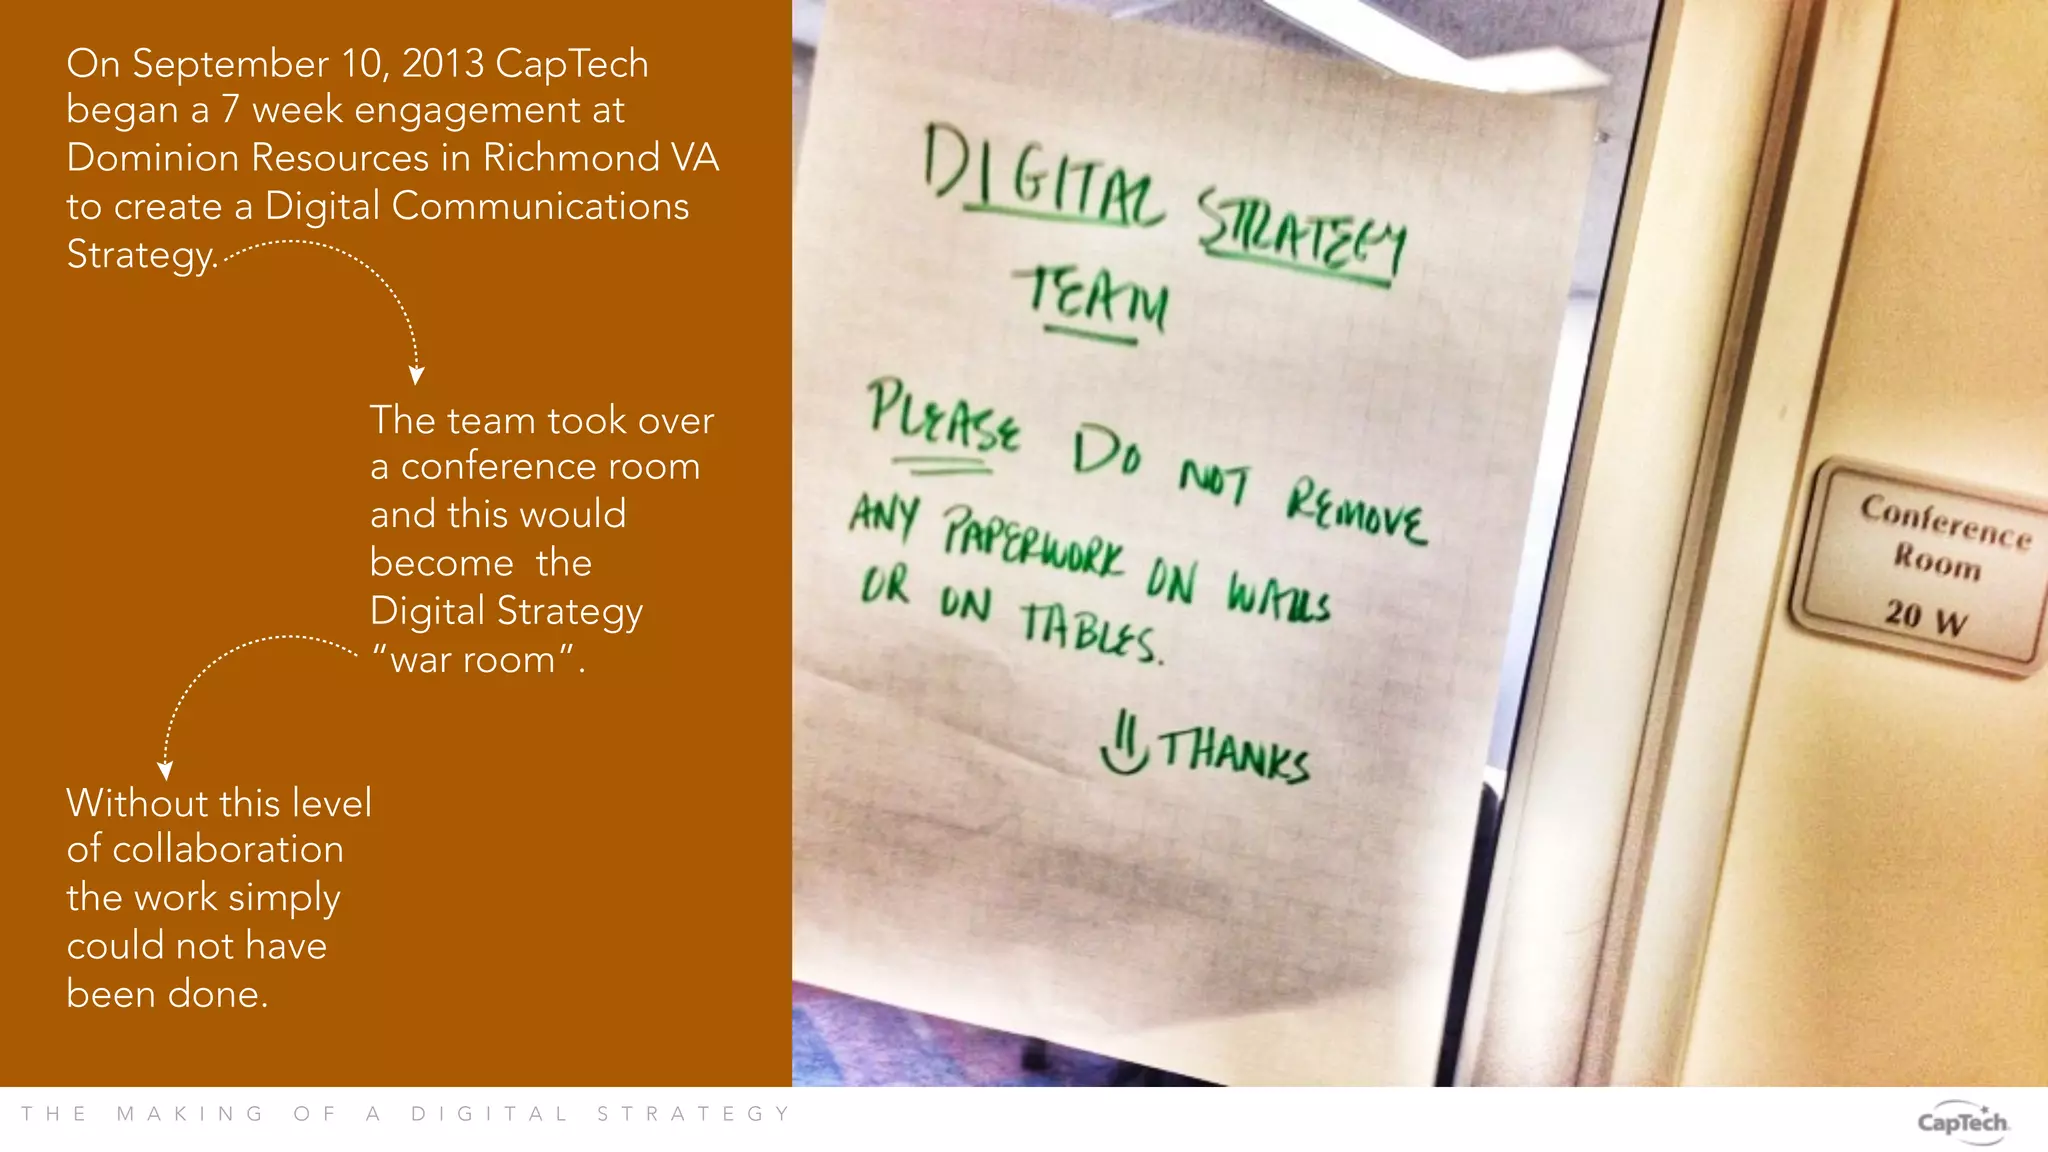 On September 10, 2013 CapTech
began a 7 week engagement at
Dominion Resources in Richmond VA
to create a Digital Communications
Strategy.
The team took over
a conference room
and this would
become  the
Digital Strategy
“war room”.
Without this level
of collaboration
the work simply
could not have
been done.
DIGITAL STRATEGY
TEAM
PLEASE DO NOT REMOVE
ANY PAPERWORK ON WALLS
OR ON TABLES.
THANKS
Conference
Room
20 W
THE MAKING OF A DIGITAL STRATEGY
CapTech